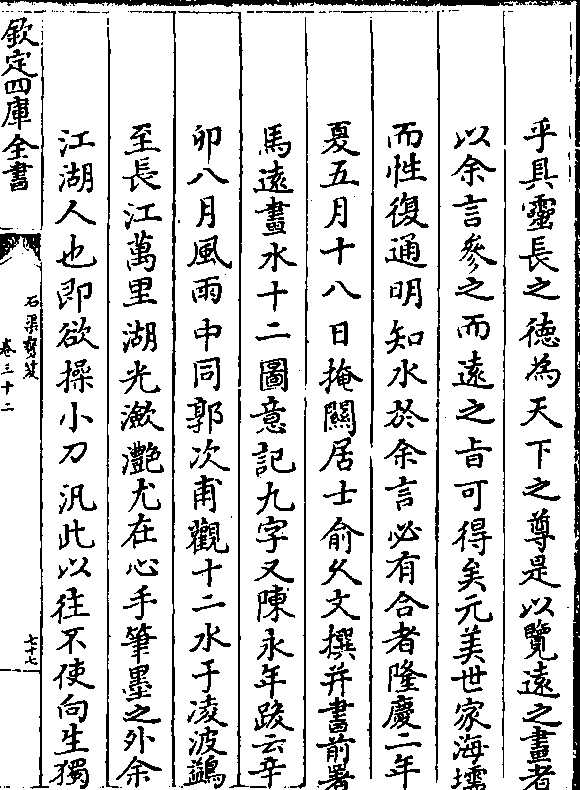 乎具靈長之徳為天下之尊是以覽遠之畫者
以余言參之而遠之旨可得矣元美世家海壖
而性復通明知水於余言必有合者隆慶二年
夏五月十八日掩闗居士俞允文撰并書前署
馬遠畫水十二圖意記九字又陳永年跋云辛
卯八月風雨中同郭次甫觀十二水于凌波鷁
至長江萬里湖光瀲灧尤在心手筆墨之外余
江湖人也即欲操小刀汎此以往不使向生獨
欽定四庫全書
石渠寳笈
卷三十二
七十七